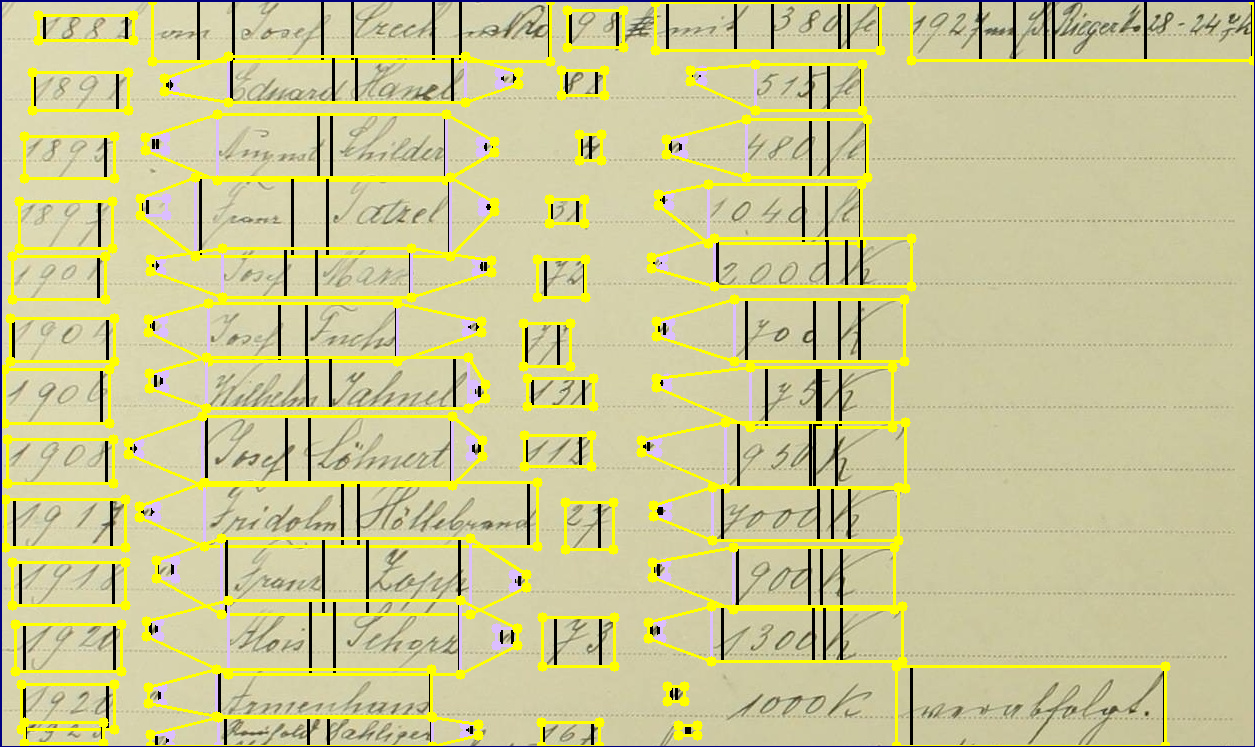 1882 von Josef Czech Nro 98 mit 380 fl 1927 an J. Rieger No 28 - 24
1891 " Eduard Hanel " 82 " 515 fl
1895 " August Schilder " 4 " 480 fl
1897 " Franz Tatzel " 31 " 1040 fl
1901 " Josef Marx " 72 " 2000 K
1904 " Josef Fuchs " 77 " 700 K
1906 " Wilhelm Jahnel " 131 " 75 K
1908 " Josef Löhnert " 112 " 950 K
1917 " Fridolin Höllebrand 27 " 7000 K
1918 " Franz Zopp " " 900 K
1920 " Alois Schorz " 73 " 1300 K
1920 " Armenhaus " 1000 K verabfolgt.
" Sahliger " 167 "